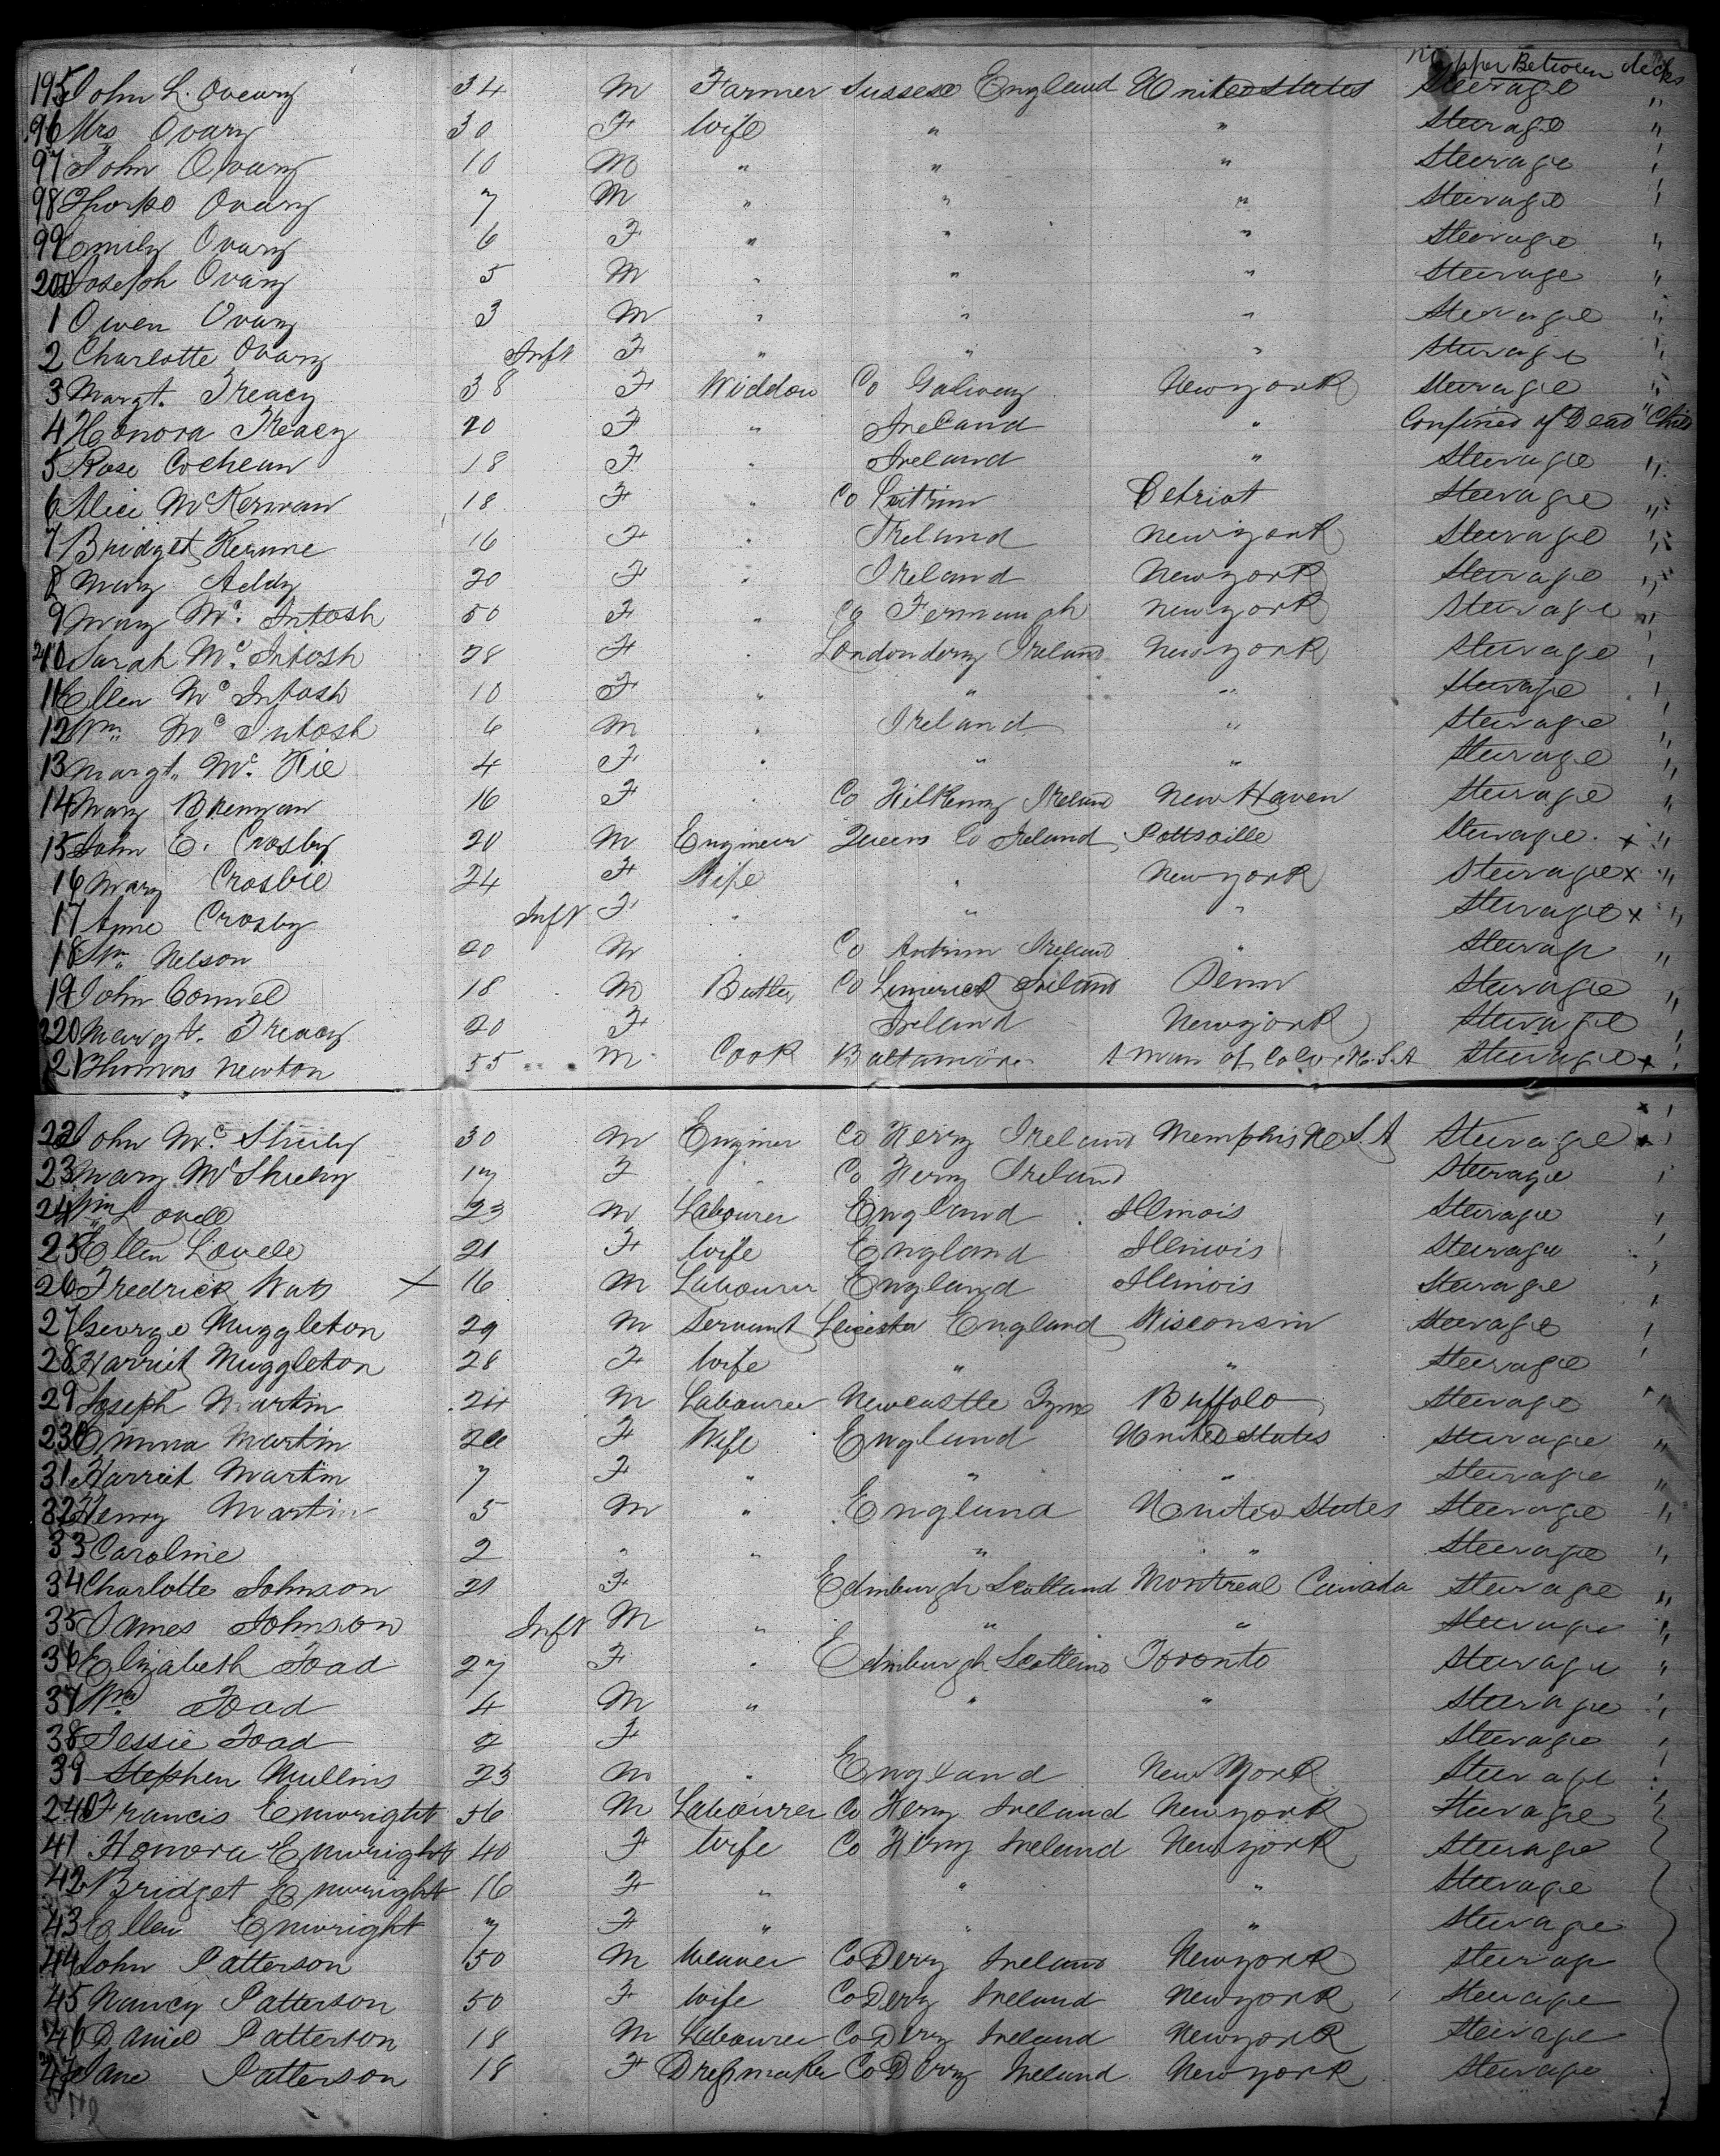 Upper Between decks
195 John L. Oveury 34 M Farmer Sussex England United States Steerage "
96 Mrs Ovary 30 F Wife " " Steerage "
97 John Ovary 10 M " " " Steerage "
98 Ovary 7 M " " " Steerage "
99 Emily Ovary 6 F " " " Steerage "
200 Joseph Ovary 5 M " " " Steerage "
1 Owen Ovary 3 M " " " Steerage "
2 Charlotte Ovary Inft F " " " Steerage "
3 Margt. Treacy 38 F Widdow Co Galway New york Steerage "
4 Honora Treacy 20 F " Ireland " Confined of Dead Child "
5 Rose Cochean 18 F " Ireland " Steerage "
6 Alice McKerwan 18 F " Co Leitrim Detriot Steerage "
7 Bridget Kerune 16 F " Ireland New york Steerage "
8 Mary Addy 20 F " Ireland New york Steerage "
9 Mary Mc. Intosh 50 F " Co Fermaugh New york Steerage "
210 Sarah Mc. Intosh 28 F " Londonderry Ireland New york Steerage "
11 Ellen Mc Intosh 10 F " " " Steerage "
12 Wm Mc Intosh 6 M " Ireland " Steerage "
13 Margt. Mc. Kie 4 F " " " Steerage "
14 Mary Brennan 16 F " Co Kilkenny Ireland New Haven Steerage "
15 John E. Crosby 20 M Engineer Queens Co Ireland Pottsville Steerage x "
16 Mary Crosbie 24 F Wife " New york Steerage x "
17 Anne Crosby Inft F " " " Steerage x "
18 Wm. Nelson 20 M " Co Antrim Ireland " Steerage "
19 John Connel 18 M Butler Co Limerick Ireland Penn Steerage "
220 Margt. Treacy 20 F Ireland New york Steerage "
21 Thomas Newton 55 M Cook Baltamore A man of Color U.S.A Steerage x "
22 John Mc. Shiehy 30 M Enginer Co Kerry Ireland Memphis U.S.A Steerage x "
23 Mary McShiehy 17 F " Co Kerry Ireland Steerage "
24 Wm Lovell 23 M Labourer England Illinois Steerage "
25 Ellen Lovele 21 F Wife England Illinois Steerage "
26 Fredrick Wats x 16 M Labourer England Illinois Steerage "
27 George Muggleton 29 M Servant Leicester England Wisconsin Steerage "
28 Harriet Muggleton 28 F Wife " " Steerage "
29 Joseph Martin 24 M Labourer Newcastle Tyne Buffalo Steerage "
230 Emma Martin F Wife England United States Steerage "
31 Harriet Martin 7 F " " " Steerage "
32 Henry Martin 5 M " England United States Steerage "
33 Caroline 2 " " " " Steerage "
34 Charlotte Johnson 21 F Edinburgh Scotland Montreal Canada Steerage "
35 James Johnson Inft M " " " Steerage "
36 Elizabeth Toad 27 F " Edinburgh Scotland Toronto Steerage "
37 Wm. Toad 4 M " " " Steerage "
38 Jessie Toad 2 F Steerage "
39 Stephen Mullins 23 M " England New York Steerage "
240 Francis Enwright 56 M Labourer Co Kerry Ireland New york Steerage
41 Honora Enwright 40 F Wife Co Kerry Ireland New york Steerage
42 Bridget Enwright 16 F " " " Steerage
43 Ellen Enwright 7 F " " " Steerage
44 John Patterson 50 M Weaver Co Derry Ireland New york Steerage
45 Nancy Patterson 50 F Wife Co Derry Ireland New york Steerage
46 Daniel Patterson 18 M Labourer Co Derry Ireland New york Steerage
47 Jane Patterson 18 F Dressmaker Co Derry Ireland New york Steerage